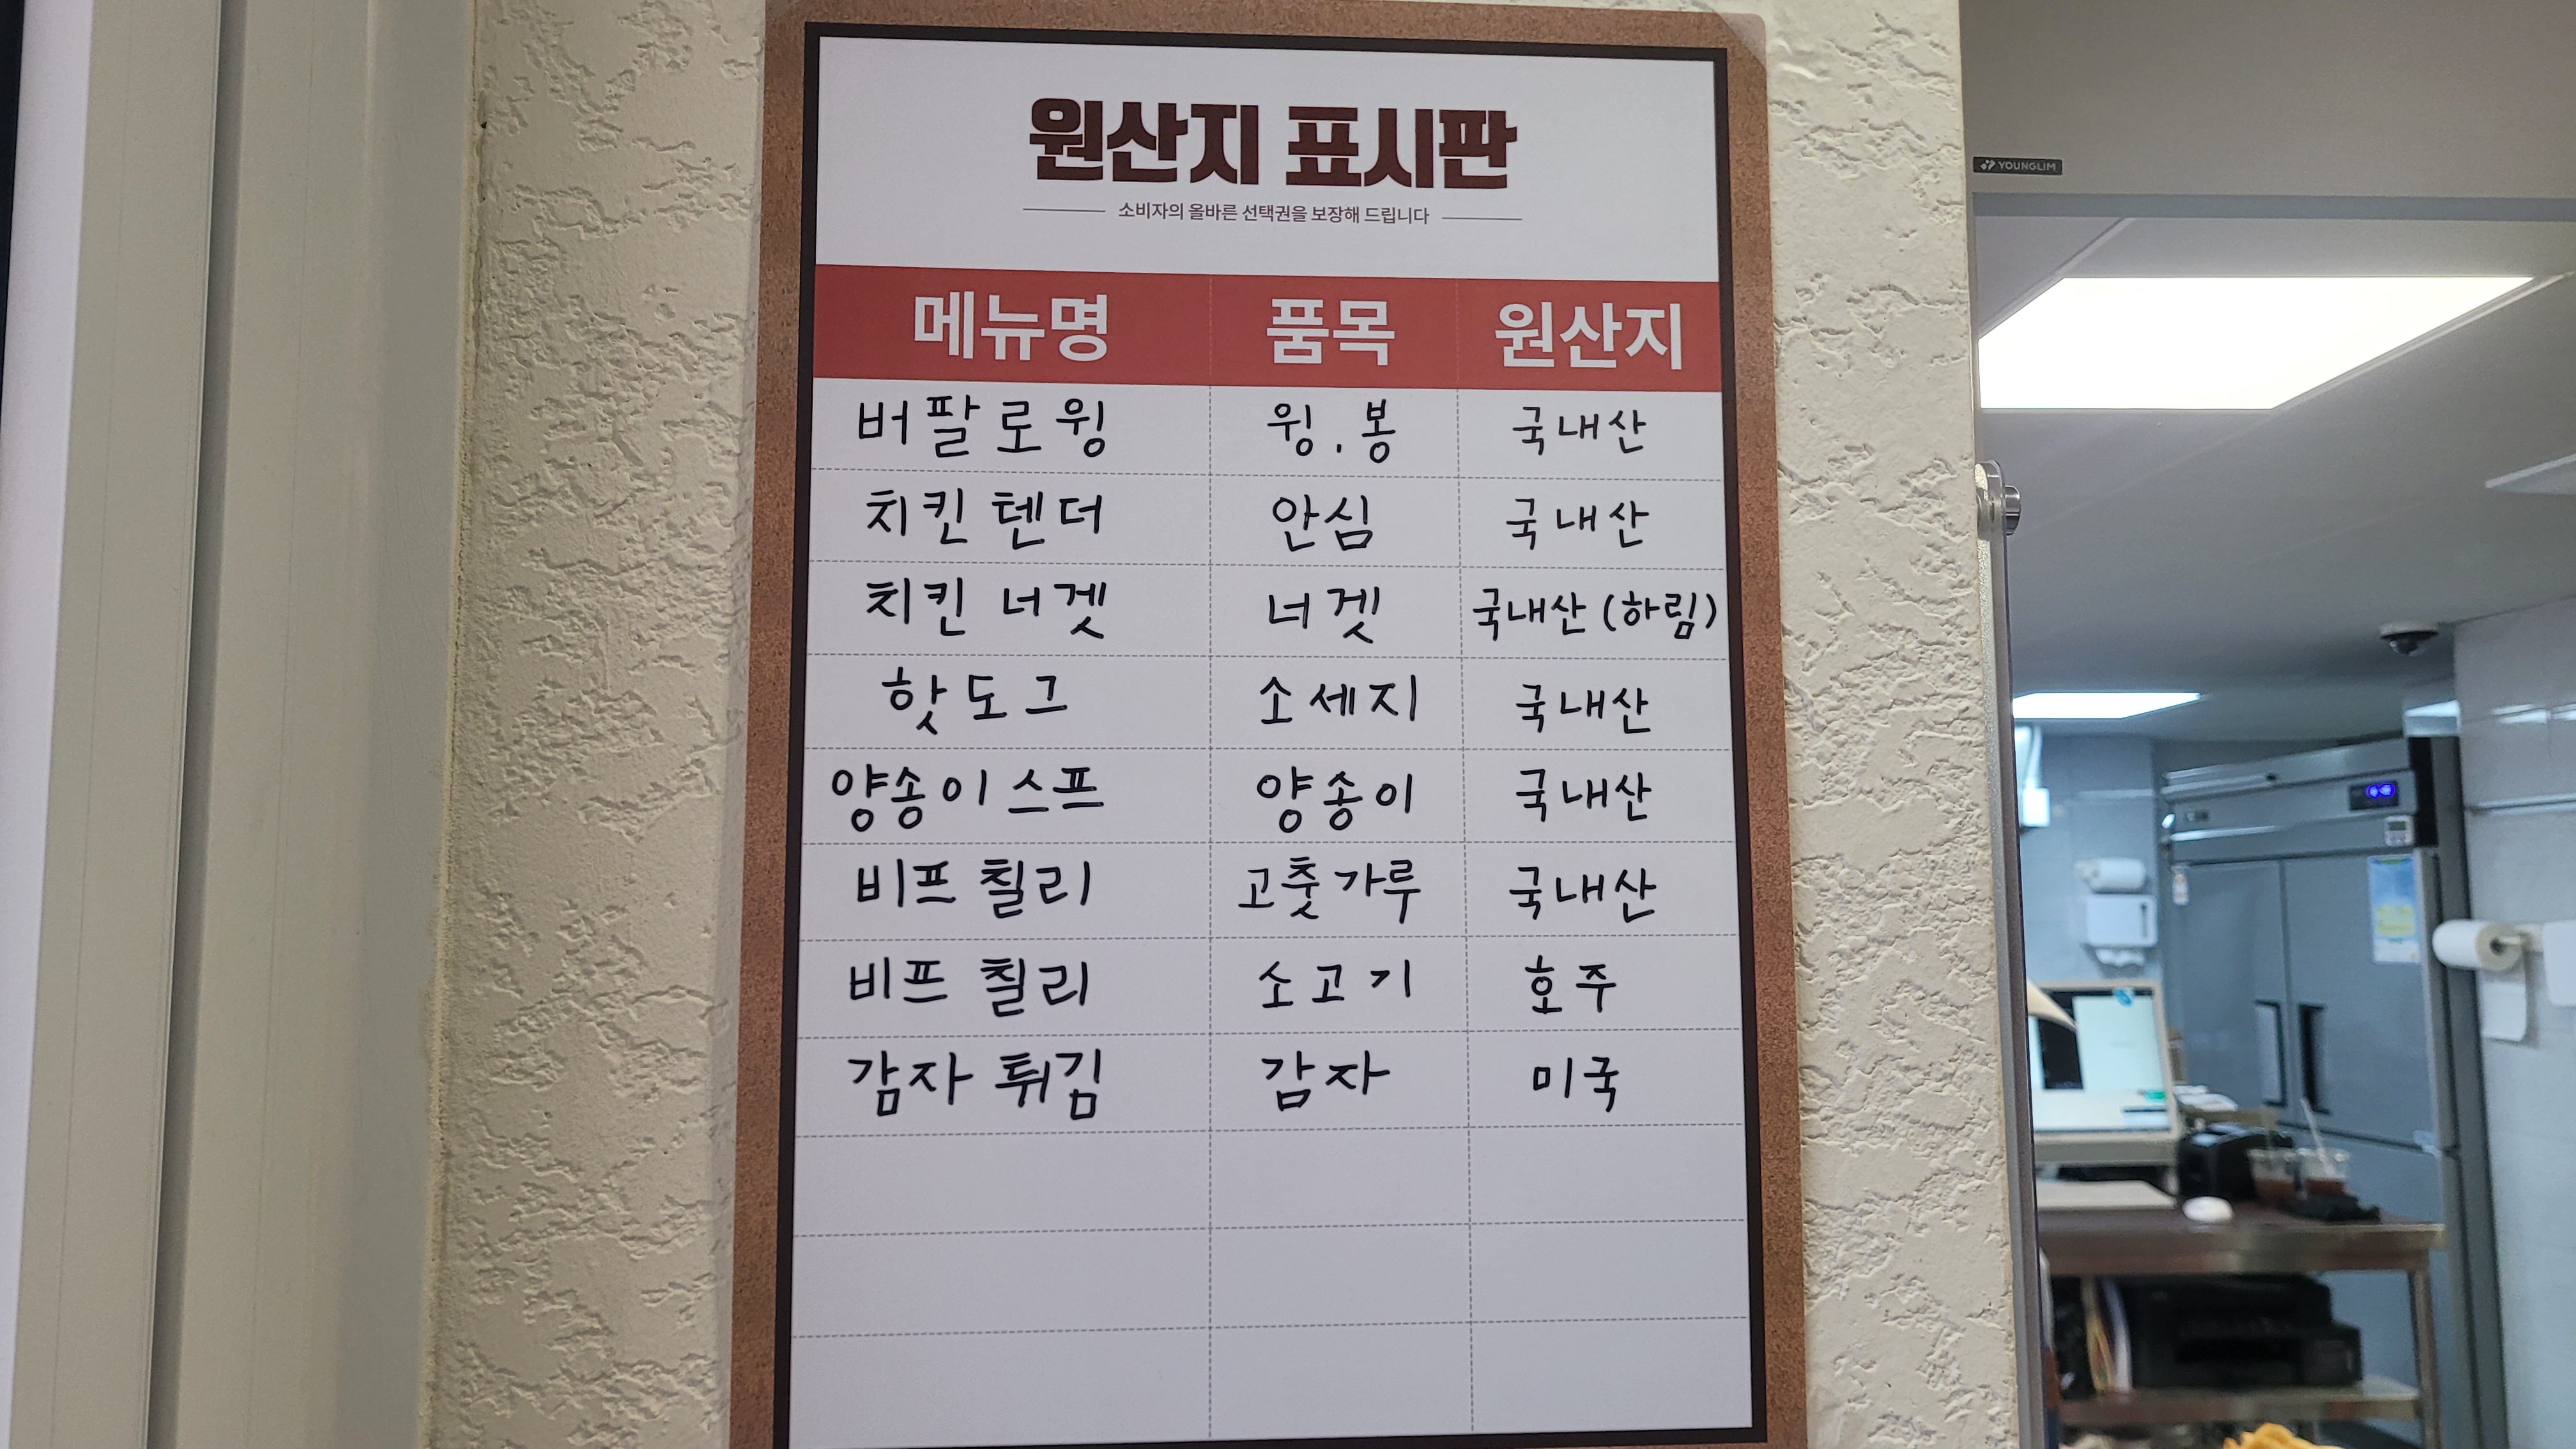 원산지 표시판
소비자의 올바른 선택권을 보장해 드립니다
메뉴명 품목 원산지
버팔로윙 윙.봉 국내산
치킨 텐더 안심 국내산
치킨 너겟 너겟 국내산(하림)
핫도그 소세지 국내산
양송이스프 양송이 국내산
비프 칠리 고춧가루 국내산
비프 칠리 소고기 호주
감자 튀김 감자 미국
YOUNGLIM